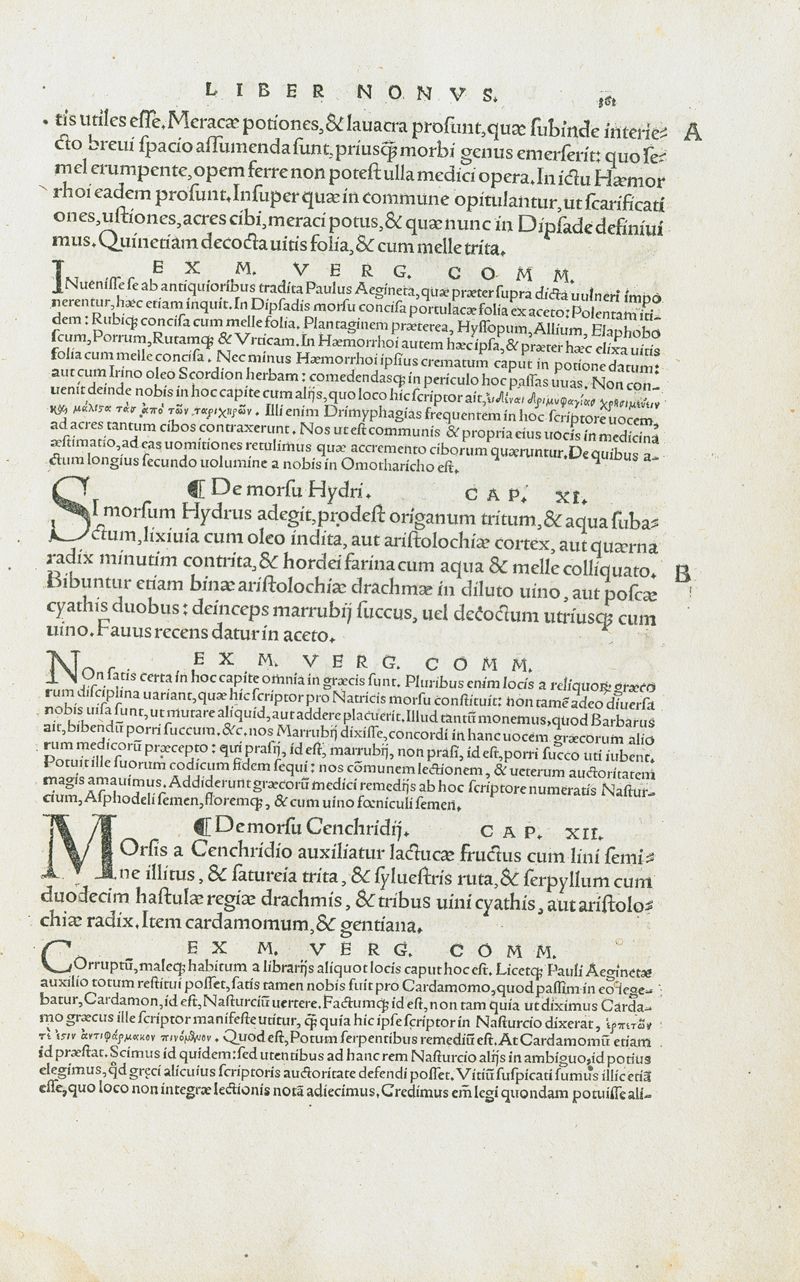 LIBER NONVS. 361
tis utiles eſſe. Meracæ potiones, & lauacra proſunt, quæ ſubinde interie⸗ A
cto breui ſpacio aſſumenda ſunt, priusq; morbi genus emerſerit: quo ſe⸗
mel erumpente, opem ferre non poteſt ulla medici opera. In ictu Hæmor
rhoi eadem proſunt. Inſuper quæ in commune opitulantur, ut ſcarificati
ones, uſtiones, acres cibi, meraci potus, & quæ nunc in Dipſade definiui
mus. Quinetiam decocta uitis folia, & cum melle trita.
EX M. VERG. COMM.
INueniſſe ſe ab antiquioribus tradita Paulus Aegineta, quæ præter ſupra dicta uulneri impo
nerentur, hæc etiam inquit. In Dipſadis morſu conciſa portulacæ folia ex aceto: Polentam iti-
dem: Rubiq; conciſa cum melle folia. Plantaginem præterea, Hyſſopum, Allium, Elaphobo
ſcum, Porrum, Rutamq; & Vrticam. In Hæmorrhoi autem hæc ipſa, & præter hæc elixa uitis
folia cum melle conciſa. Nec minus Hæmorrhoi ipſius crematum caput in potione datum:
aut cum Irino oleo Scordion herbam: comedendasq; in periculo hoc paſſas uuas. Non con-
uenit deinde nobis in hoc capite cum alijs, quo loco hic ſcriptor ait, δριμυφαγίας
μάλιστα τῶν ἀπὸ τῶν ταριχηρῶν. Illi enim Drimyphagias frequentem in hoc ſcriptore uocem,
ad acres tantum cibos contraxerunt. Nos ut eſt communis & propria eius uocis in medicina
æſtimatio, ad eas uomitiones retulimus quæ accremento ciborum quæruntur. De quibus a-
ctum longius ſecundo uolumine a nobis in Omotharicho eſt.
¶ De morſu Hydri. CAP. XI.
SI morſum Hydrus adegit, prodeſt origanum tritum, & aqua ſuba⸗
ctum, lixiuia cum oleo indita, aut ariſtolochiæ cortex, aut quærna
radix minutim contrita, & hordei farina cum aqua & melle colliquato. B
Bibuntur etiam binæ ariſtolochiæ drachmæ in diluto uino, aut poſcæ
cyathis duobus: deinceps marrubij ſuccus, uel decoctum utriusq; cum
uino. Fauus recens datur in aceto.
EX M. VERG. COMM.
NOn ſatis certa in hoc capite omnia in græcis ſunt. Pluribus enim locis a reliquorum græco
rum diſciplina uariant, quæ hic ſcriptor pro Natricis morſu conſtituit: non tamē adeo diuerſa
nobis uiſa ſunt, ut mutare aliquid, aut addere placuerit. Illud tantū monemus, quod Barbarus
ait, bibendū porri ſuccum. &c. nos Marrubij dixiſſe, concordi in hanc uocem græcorum alio
rum medicorū præcepto: qui praſij, id eſt, marrubij, non praſi, id eſt, porri ſucco uti iubent.
Potuit ille ſuorum codicum fidem ſequi: nos cōmunem lectionem, & ueterum auctoritatem
magis amauimus. Addiderunt græcorū medici remedijs ab hoc ſcriptore numeratis Naſtur-
cium, Aſphodeli ſemen, floremq;, & cum uino fœniculi ſemen.
¶ De morſu Cenchridij. CAP. XII.
MOrſis a Cenchridio auxiliatur lactucæ fructus cum lini ſemi⸗
ne illitus, & ſatureia trita, & ſylueſtris ruta, & ſerpyllum cum
duodecim haſtulæ regiæ drachmis, & tribus uini cyathis, aut ariſtolo⸗
chiæ radix. Item cardamomum, & gentiana.
EX M. VERG. COMM.
COrruptū, maleq; habitum a librarijs aliquot locis caput hoc eſt. Licetq; Pauli Aeginetæ
auxilio totum reſtitui poſſet, ſatis tamen nobis fuit pro Cardamomo, quod paſſim in eo lege-
batur, Cardamon, id eſt, Naſturciū uertere. Factumq; id eſt, non tam quia ut diximus Carda-
mo græcus ille ſcriptor manifeſte utitur, q̄ quia hic ipſe ſcriptor in Naſturcio dixerat, ἑρπετῶν
τέ ἐστιν ἀντιφάρμακον πινόμενον. Quod eſt, Potum ſerpentibus remediū eſt. At Cardamomū etiam
id præſtat. Scimus id quidem: ſed utentibus ad hanc rem Naſturcio alijs in ambiguo, id potius
elegimus, qđ græci alicuius ſcriptoris auctoritate defendi poſſet. Vitiū ſuſpicati ſumus illic etiā
eſſe, quo loco non integræ lectionis notā adiecimus. Credimus em̄ legi quondam potuiſſe ali-